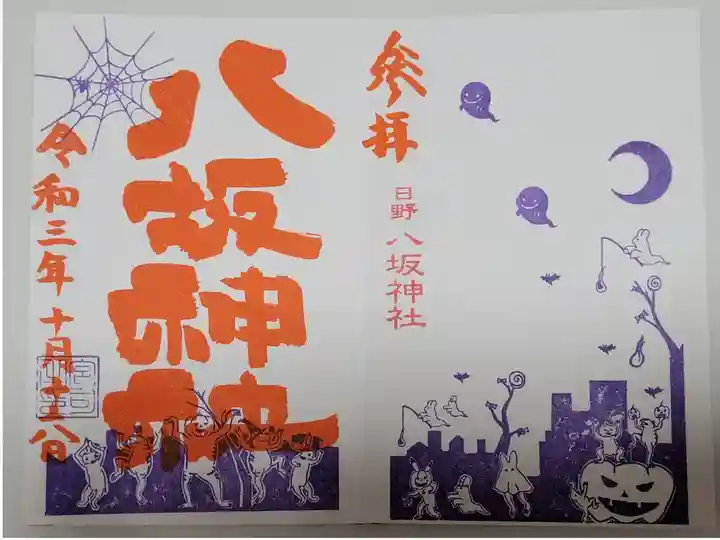 参拝
日野 八坂神社
八坂神社
令和三年十月十三日